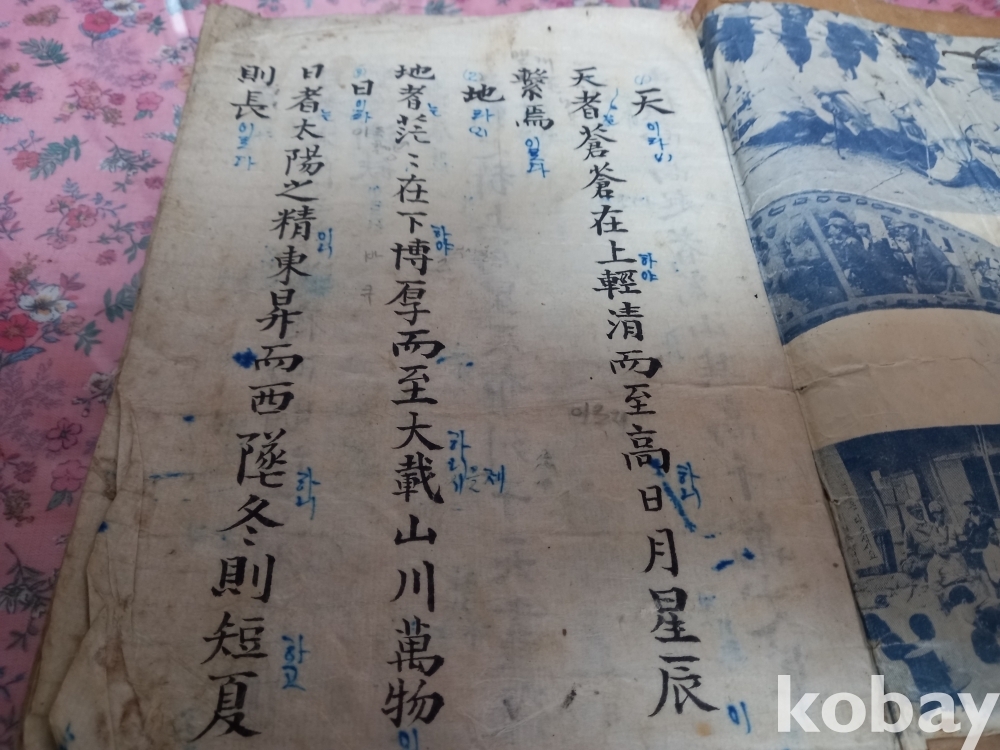 天 이라
天者蒼蒼在上하야輕清而至高하니日月星辰이
繫焉
地 라
地者는茫〻在下하야博厚而至大하니載山川萬物이
日이라
日者는太陽之精이니東昇而西墜하니冬則短하고夏
則長
kobay